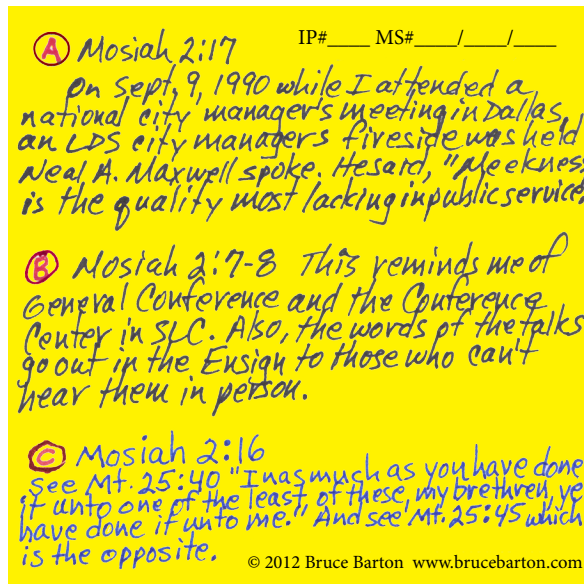 IP#____ MS#____/____/____
A Mosiah 2:17
On Sept. 9, 1990 while I attended a
national city manager's meeting in Dallas,
an LDS city managers fireside was held
Neal A. Maxwell spoke. He said, "Meekness
is the quality most lacking in public service.
B Mosiah 2:7-8 This reminds me of
General Conference and the Conference
Center in SLC. Also, the words of the talks
go out in the Ensign to those who can't
hear them in person.
C Mosiah 2:16
See Mt. 25:40 "Inasmuch as you have done
it unto one of the least of these, my brethren, ye
have done it unto me." And see Mt. 25:45 which
is the opposite.
© 2012 Bruce Barton www.brucebarton.com